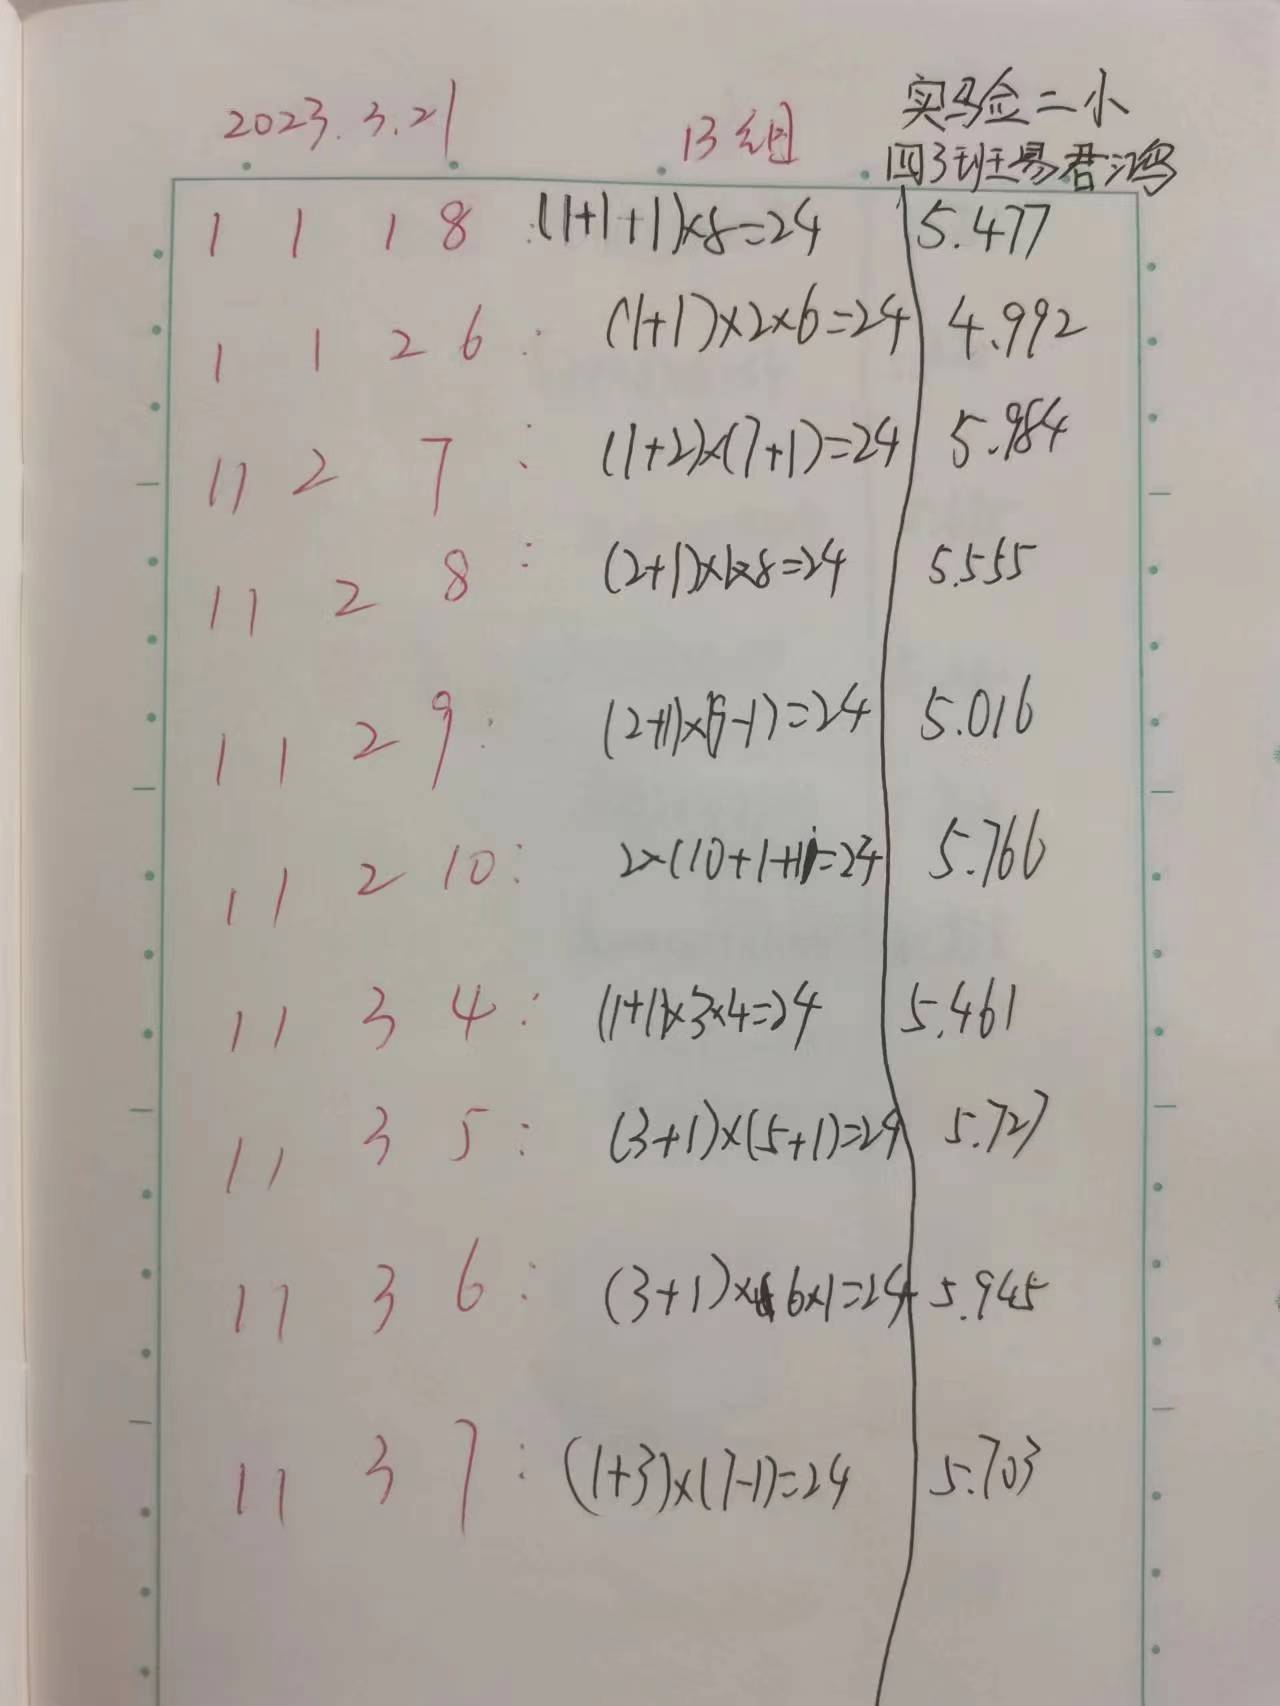 2023.3.21 13组 实验二小
四3班易君鸿
1 1 1 8 :(1+1+1)×8=24 5.477
1 1 2 6 : (1+1)×2×6=24 4.992
1 1 2 7 : (1+2)×(7+1)=24 5.984
1 1 2 8 : (2+1)×1×8=24 5.555
1 1 2 9 : (2+1)×(9-1)=24 5.016
1 1 2 10 : 2×(10+1+1)=24 5.766
1 1 3 4 : (1+1)×3×4=24 5.461
1 1 3 5 : (3+1)×(5+1)=24 5.727
1 1 3 6 : (3+1)×6×1=24 5.945
1 1 3 7 : (1+3)×(7-1)=24 5.703